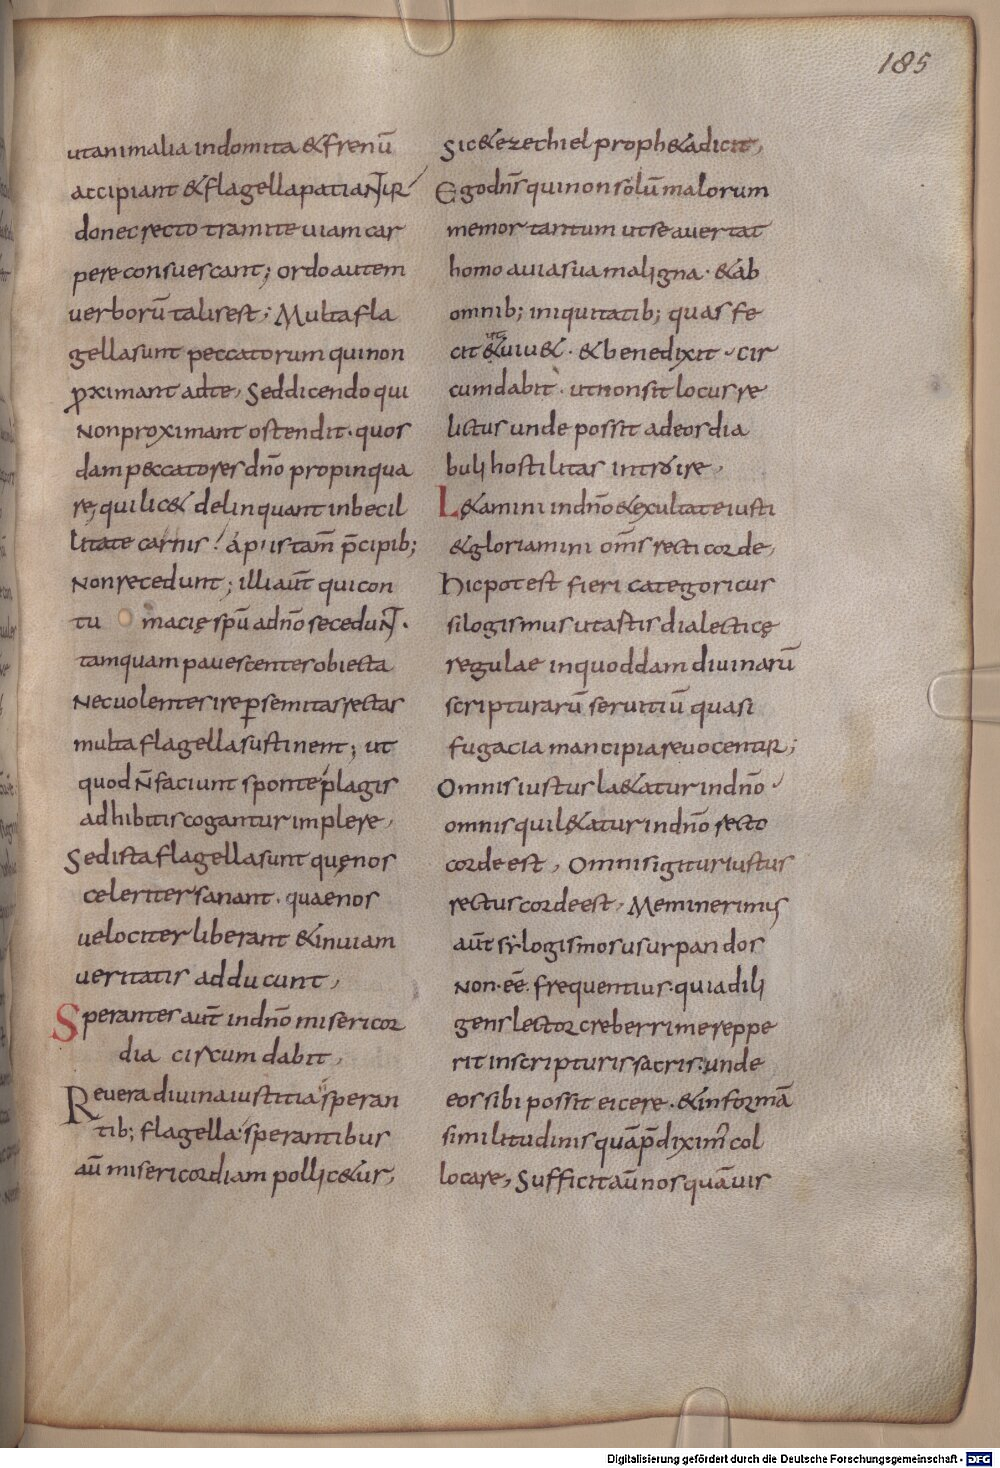 185
ut animalia indomita & frenū
accipiant & flagella patiantur
donec recto tramite uiam car
pere consuescant; ordo autem
uerborū talis est; Multa fla
gella sunt peccatorum qui non
ꝓximant ad te, Sed dicendo qui
Non proximant ostendit. quos
dam peccatores dn̄o propinqua
re, qui lic& delinquant inbecil
litate carnis. a piis tam̄ p̄cipib;
Non recedunt; illi aūt qui con
tu macię spū ad dn̄o secedunt.
tamquam pauescentes obiecta
Nec uolentes ire ꝑ semitas rectas
multa flagella sustinent; ut
quod n̄ faciunt sponte plagis
adhibitis cogantur implere,
Sed ista flagella sunt quę nos
celeriter sanant. quae nos
uelociter liberant & in uiam
ueritatis adducunt,
Sperantes aūt in dn̄o misericor
dia circumdabit,
Reuera diuina iustitia speran
tib; flagella. sperantibus
aū misericordiam pollic&ur,
Sic & ezechiel proph&a dicit,
Ego dn̄s qui non solū malorum
memor tantum ut se auertat
homo a uia sua maligna. & ab
omnib; iniquitatib; quas fe
cit & uiu&. & benedixit. cir
cumdabit. ut non sit locus re
lictus unde possit ad eos dia
buli hostilitas introire,
L&amini in dn̄o & exultate iusti
& gloriamini om̄s recti corde,
Hic potest fieri categoricus
silogismus ut astis dialecticę
regulae in quoddam diuinarū
scripturarū seruitiū quasi
fugacia mancipia reuocentur;
Omnis iustus l&atur in dn̄o
omnis qui l&atur in dn̄o recto
corde est, Omnis igitur iustus
rectus corde est, Meminerimus
aūt sylogismos usurpandos
Non. eē. frequentius. quia dili
gens lector creberrime reppe
rit in scripturis sacris. unde
eos sibi possit eicere. & in formā
similitudinis quā p̄diximus col
locare, Sufficit aū nos quāuis
Digitalisierung gefördert durch die Deutsche Forschungsgemeinschaft - DFG